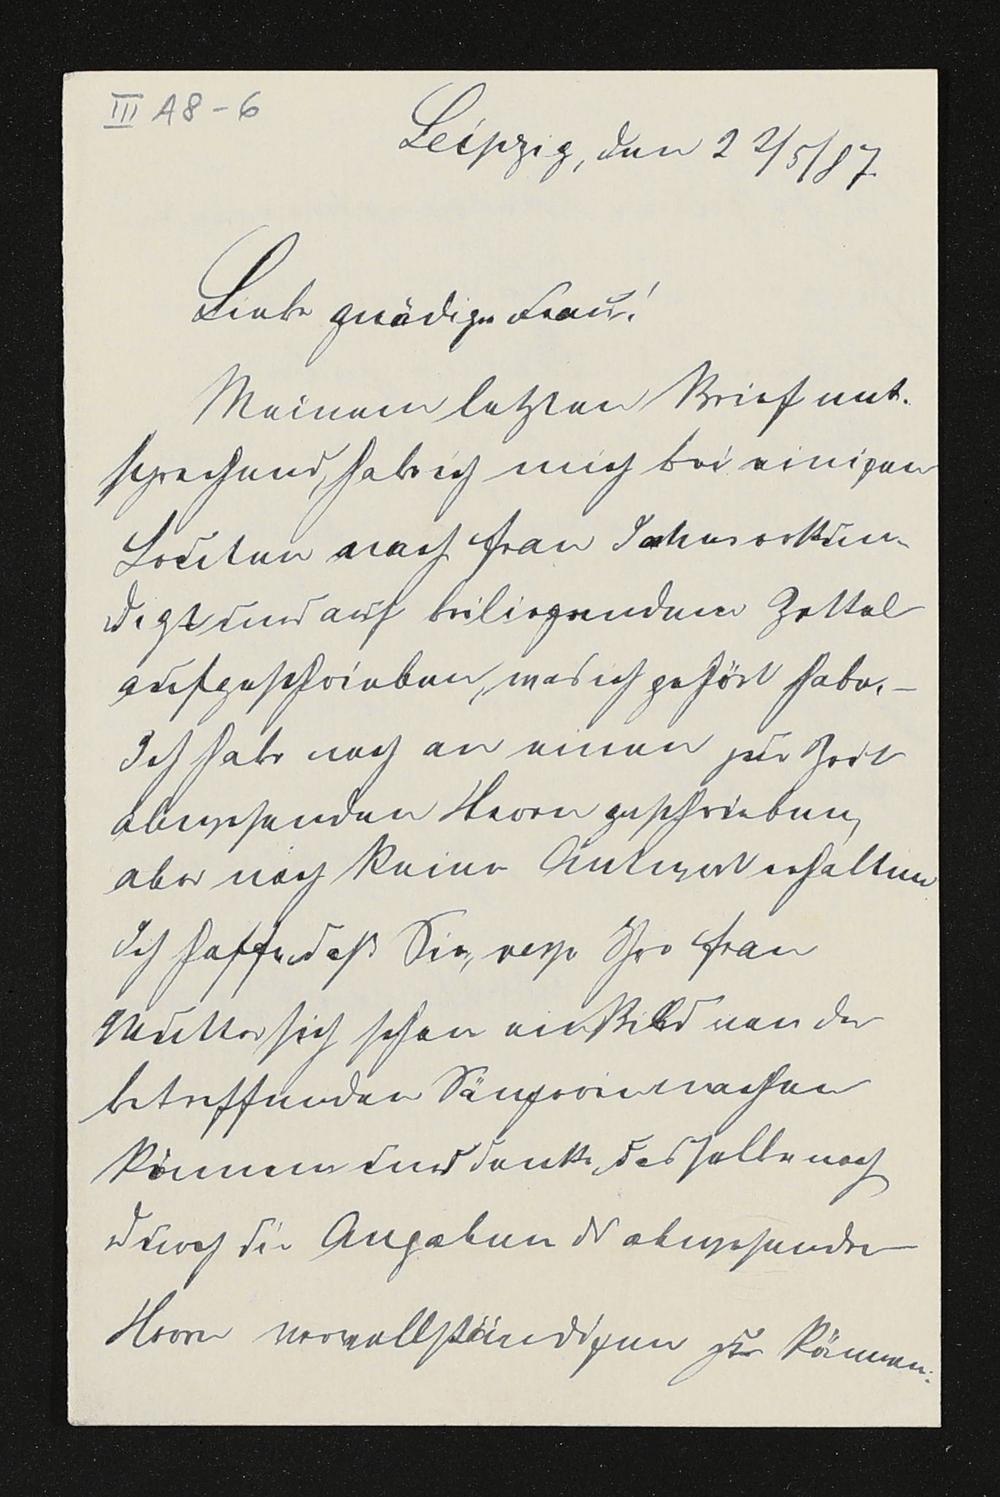 III A8-6
Leipzig, den 22/5/87
Liebe gnädige Frau!
Meinem letzten Brief ent-
sprechend, habe ich mich bei einigen
Leuten nach Frau erkun-
digt und auf beiliegendem Zettel
aufgeschrieben, was ich gehört habe. –
Ich habe noch an einen zur Zeit
abwesenden Herrn geschrieben,
aber noch keine Antwort erhalten
Ich hoffe, daß Sie, resp Ihre Frau
Mutter sich schon ein Bild von der
betreffenden Sängerin machen
können und denke, dasselbe noch
durch die Angaben des abwesenden
Herrn vervollständigen zu können.